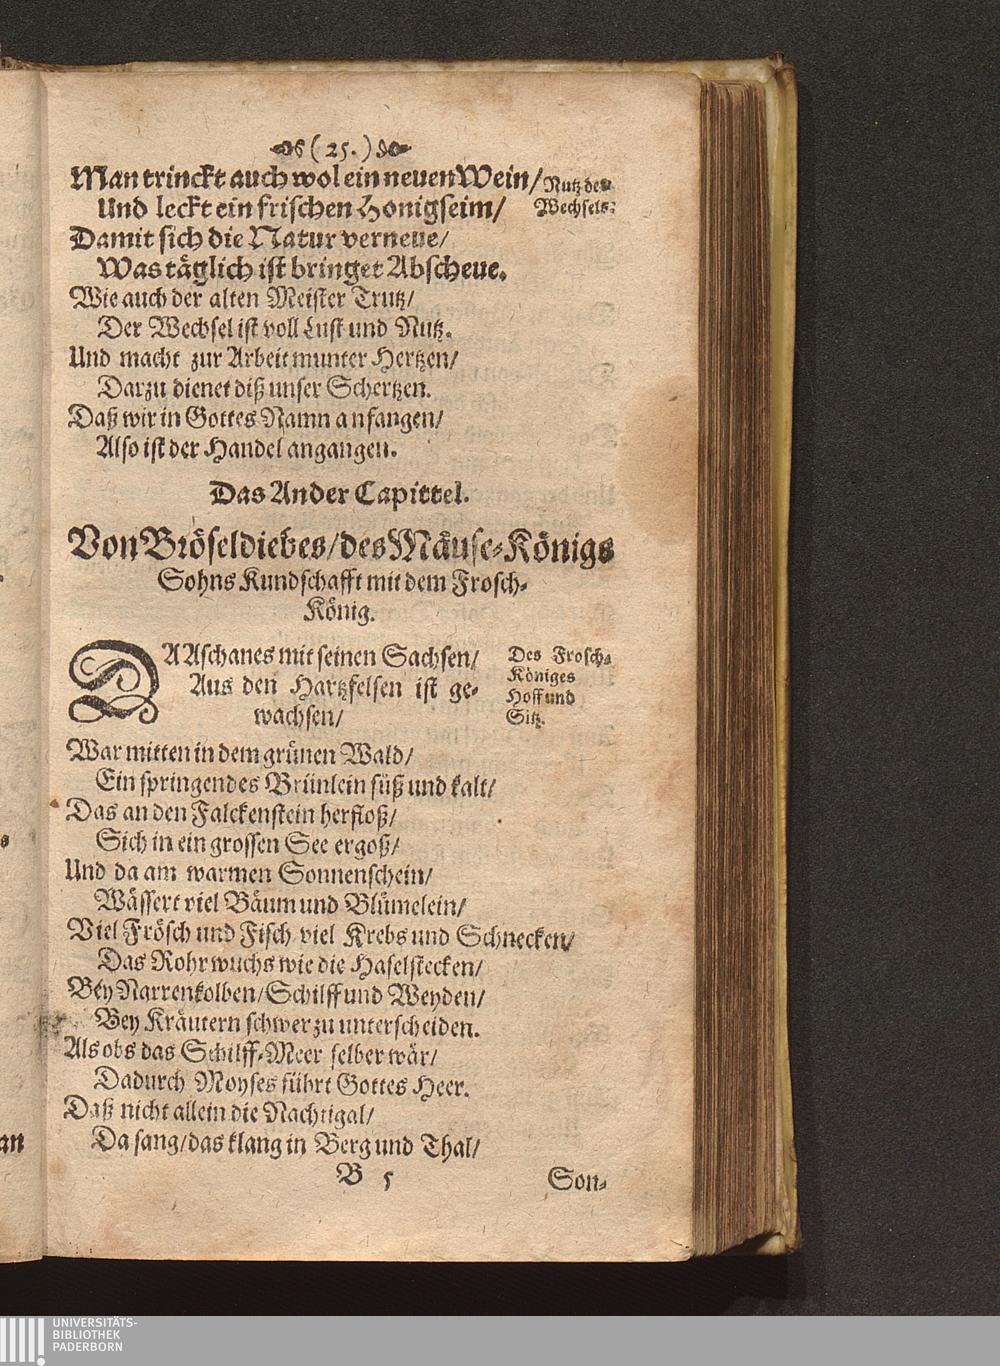 (25.)
Man trinckt auch wol ein neuen Wein/
Und leckt ein frischen Honigseim/
Damit sich die Natur verneue/
Was täglich ist bringet Abscheue.
Nutz des
Wechsels.
Wie auch der alten Meister Trutz/
Der Wechsel ist voll Lust und Nutz.
Und macht zur Arbeit munter Hertzen/
Darzu dienet diß unser Schertzen.
Daß wir in Gottes Namn anfangen/
Also ist der Handel angangen.
Das Ander Capittel.
Von Bröseldiebes/des Mäuse-Königs
Sohns Kundschafft mit dem Frosch-
König.
DA Aschanes mit seinen Sachsen/
Aus den Hartzfelsen ist ge-
wachsen/
Des Frosch-
Königes
Hoff und
Sitz.
War mitten in dem grünen Wald/
Ein springendes Brünlein süß und kalt/
Das an den Falckenstein herfloß/
Sich in ein grossen See ergoß/
Und da am warmen Sonnenschein/
Wässert viel Bäum und Blümelein/
Viel Frösch und Fisch viel Krebs und Schnecken/
Das Rohr wuchs wie die Haselstecken/
Bey Narrenkolben/Schilff und Weyden/
Bey Kräutern schwer zu unterscheiden.
Als obs das Schilff-Meer selber wär/
Dadurch Moyses führt Gottes Heer.
Daß nicht allein die Nachtigal/
Da sang/das klang in Berg und Thal/
B 5
Son-
an
UNIVERSITÄTS-
BIBLIOTHEK
PADERBORN